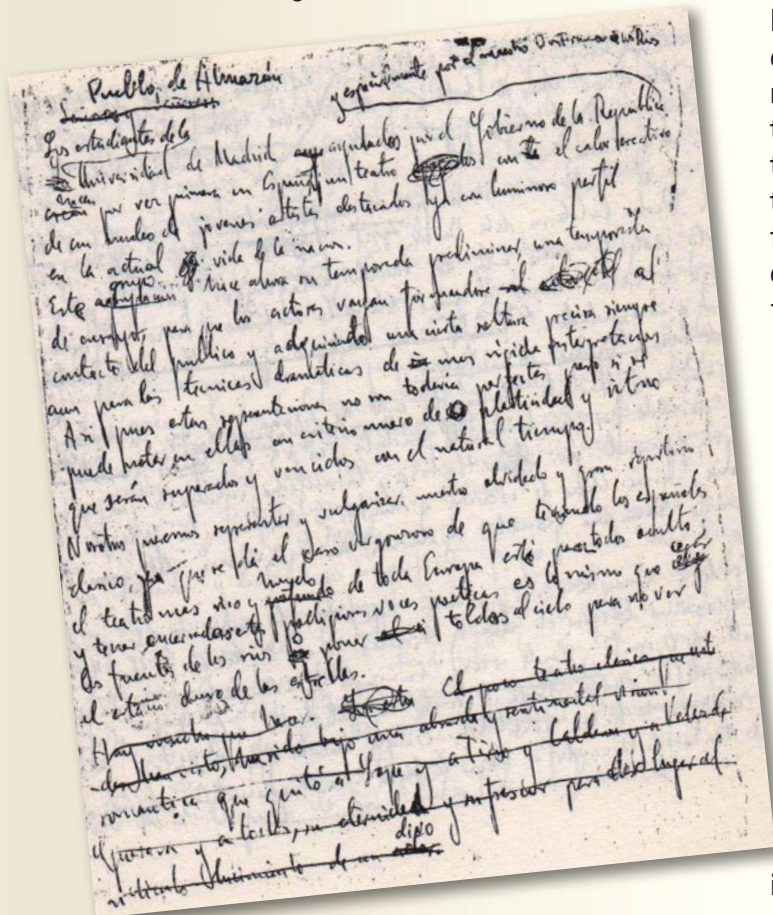 Pueblo de Almazán
y especialmente por el maestro
Señoras y Señores
Los estudiantes de la
Universidad de Madrid ayudados por el Gobierno de la República
hacen por vez primera en España un teatro con el calor creativo
de un núcleo de jóvenes artistas destacados ya con luminoso perfil
en la actual vida de la nación.
Este grupo hace ahora su temporada preliminar, una temporada
de ensayo, para que los actores vayan al
contacto del publico y adquiriendo una cierta soltura precisa siempre
aun para las técnicas dramáticas de mas rígida interpretacion
Asi pues estas representaciones no son todavia perfectas pero si se
puede notar en ellas un criterio nuevo de plasticidad y ritmo
que serán superados y vencidos con el natural tiempo.
Nosotros queremos representar y vulgarizar nuestro olvidado y gran repertorio
clasico, ya que se dá el caso vergonzoso de que teniendo los españoles
el teatro mas vivo y de toda Europa esté para todos oculto;
y tener encerradas estas prodigiosas voces poeticas es lo mismo que cegar
las fuentes de los rios o poner toldos al cielo para no ver
el estaño duro de las estrellas.
Hay mucho que hacer. El poco teatro clasico
ha sido bajo una absurda y sentimental vision
romantica que quitó a Lope y a Tirso y Calderon y a Velez de
Guevara y a todos, su eternidad y su frescor para dar lugar al
ridiculo lucimiento de un divo